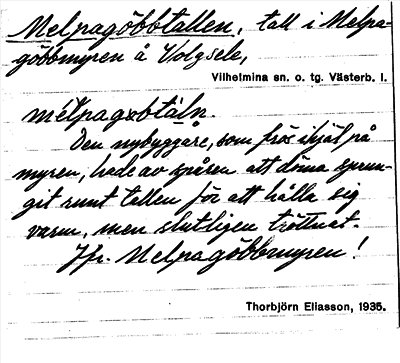 Melpagöbbtallen, tall i Melpa-
göbbmyren å Volgsele,
Vilhelmina sn. o. tg. Västerb. l.
mélpagöbtàln.
Den nybyggare, som frös ihjäl på
myren, hade av spåren att döma sprun-
git runt tallen för att hålla sig
varm, men slutligen tröttnat.
Jfr. Melpagöbbmyren!
Thorbjörn Eliasson, 1935.